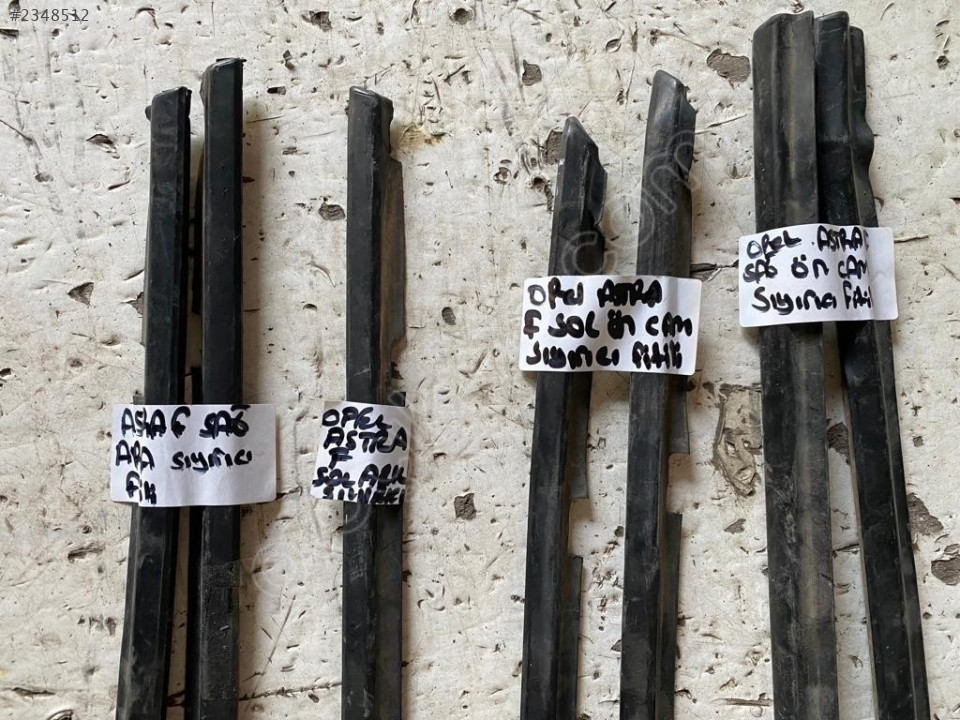 #2348512
ASTRA F SAĞ
ARA SIYIRICI
FİTİL
OPEL
ASTRA
F
SOL ARKA
OPEL ASTRA
F SOL ÖN CAM
SIYIRICI FİTİLİ
OPEL ASTRA F
SAĞ ÖN CAM
SIYIRICI FİTİLİ